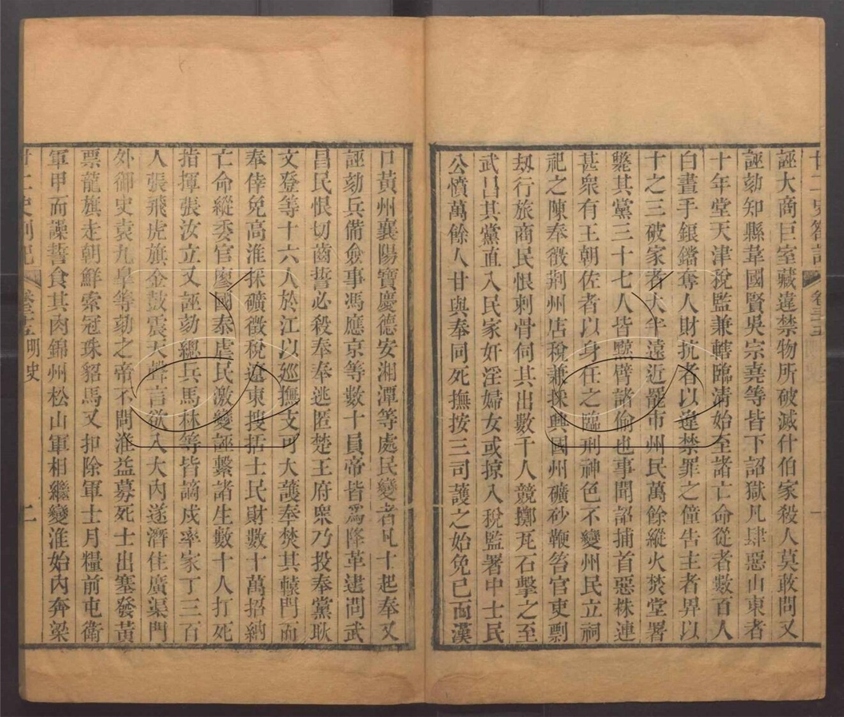 廿二史劄記 卷三十五
誣大商巨室藏違禁物所破滅什伯家殺人莫敢問又
誣劾知縣韋國賢吳宗堯等皆下詔獄凡肆惡山東者
十年堂天津稅監兼轄臨清始至諸亡命從者數百人
白晝手銀鐺奪人財抗者以違禁罪之僮告主者畀以
十之三破家者大半遠近罷市州民萬餘縱火焚堂署
斃其黨三十七人皆黥臂諸偷也事聞詔捕首惡株連
甚衆有王朝佐者以身任之臨刑神色不變州民立祠
祀之陳奉徵荆州店稅兼採興國州礦砂鞭笞官吏剽
刼行旅商民恨刺骨伺其出數千人競擲瓦石擊之至
武昌其黨直入民家奸淫婦女或掠入稅監署中士民
公憤萬餘人甘與奉同死撫按三司護之始免已而漢
口黃州襄陽寶慶德安湘潭等處民變者凡十起奉又
誣劾兵備僉事馮應京等數十員帝皆爲降革逮問武
昌民恨切齒誓必殺奉奉逃匿楚王府衆乃投奉黨耿
文登等十六人於江以巡撫支可大護奉焚其轅門而
奉倖免高淮採礦徵稅遼東搜括士民財數十萬招納
亡命縱委官廖國泰虐民激變誣繫諸生數十人打死
指揮張汝立又誣劾總兵馬林等皆謫戍率家丁三百
人張飛虎旗金鼓震天聲言欲入大內遂濳住廣渠門
外御史袁九臯等劾之帝不問淮益募死士出塞發黃
票龍旗走朝鮮索冠珠貂馬又扣除軍士月糧前屯衛
軍甲而譟誓食其肉錦州松山軍相繼變淮始內奔梁
廿二史劄記 卷三十五 明史 二